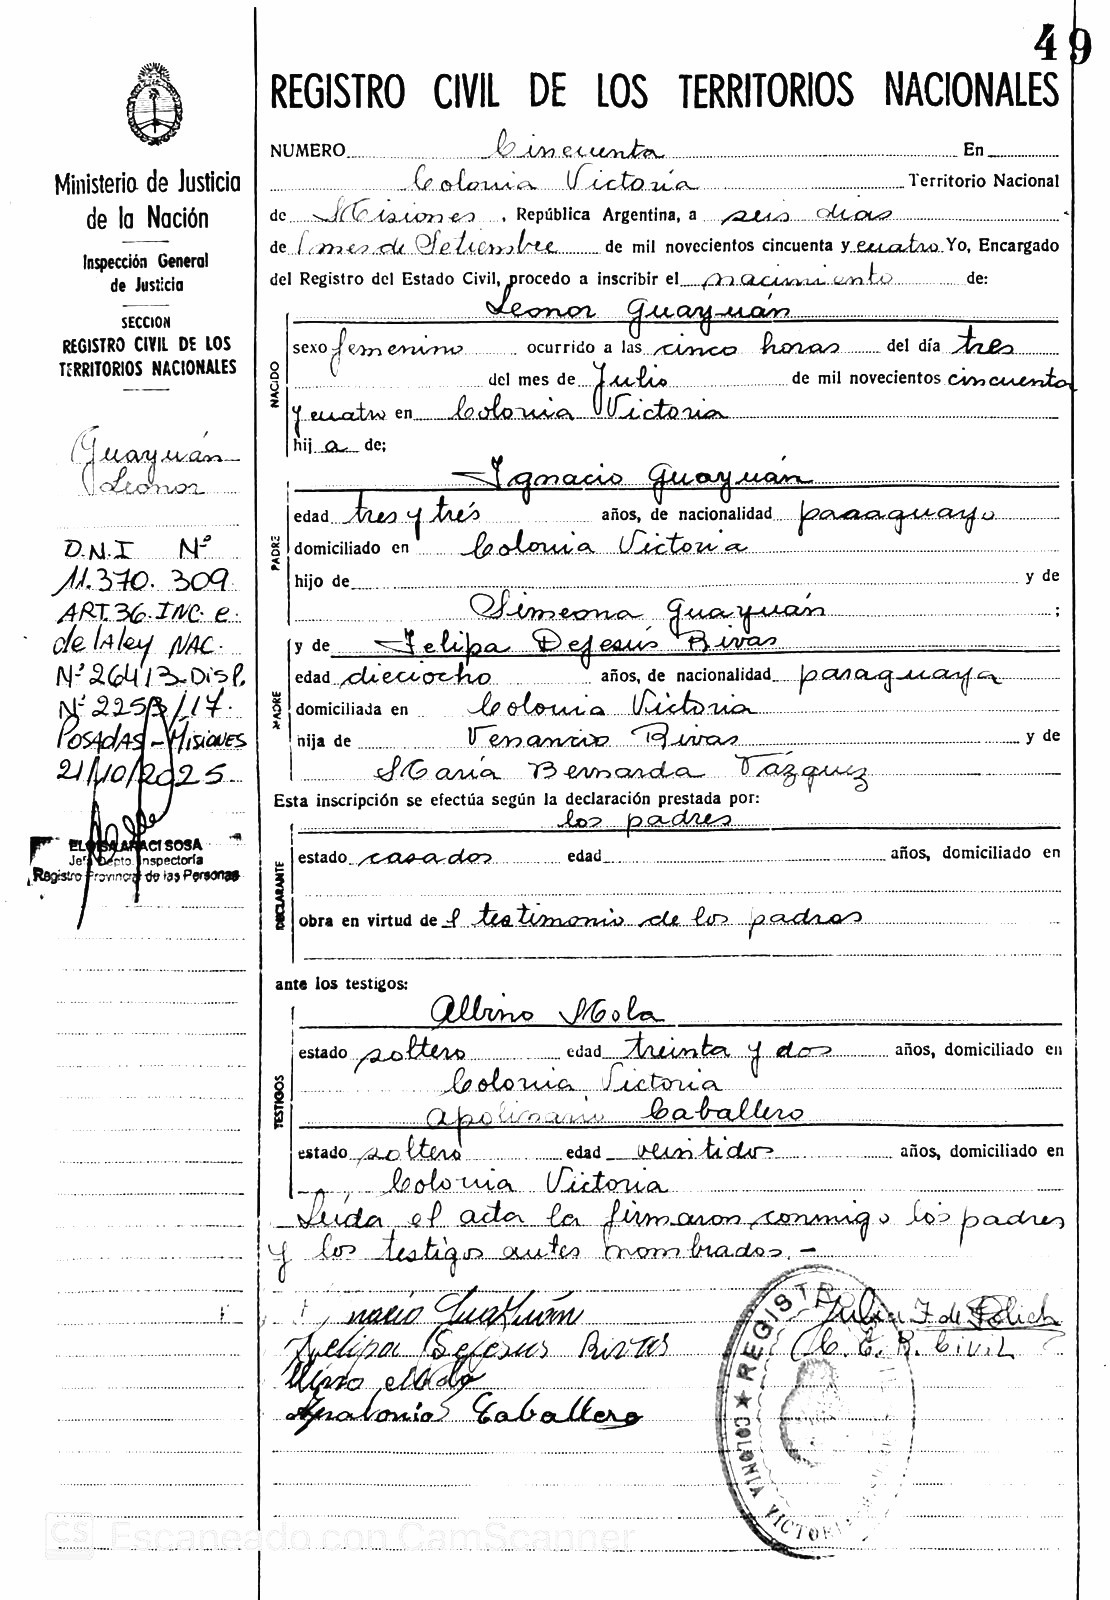 49
REGISTRO CIVIL DE LOS TERRITORIOS NACIONALES
Ministerio de Justicia
de la Nación
Inspección General
de Justicia
SECCION
REGISTRO CIVIL DE LOS
TERRITORIOS NACIONALES
Guayuán
Leonor
D.N.I Nº
11.370.309
ART.36.INC.e.
de lAley NAC.
Nº26413-DisP.
Nº2253/17.
POSADAS-MISIONES
21/10/2025
ELOISA ARACI SOSA
Jefa Dpto. Inspectoría
Registro Provincial de las Personas
NUMERO Cincuenta En
Colonia Victoria Territorio Nacional
de Misiones, República Argentina, a seis dias
de l mes de Setiembre de mil novecientos cincuenta y cuatro Yo, Encargado
del Registro del Estado Civil, procedo a inscribir el nacimiento de:
NACIDO
Leonor Guayuán
sexo femenino ocurrido a las cinco horas del día tres
del mes de Julio de mil novecientos cincuenta
y cuatro en Colonia Victoria
hij a de;
PADRE
Ignacio Guayuán
edad tres y trés años, de nacionalidad paraguayo
domiciliado en Colonia Victoria
hijo de y de
Simeona Guayuán ;
MADRE
y de Felipa Dejesús Rivas
edad dieciocho años, de nacionalidad paraguaya
domiciliada en Colonia Victoria
hija de Venancio Rivas y de
María Bernarda Vázquez
Esta inscripción se efectúa según la declaración prestada por:
DECLARANTE
los padres
estado casados edad años, domiciliado en
obra en virtud de l testimonio de los padres
ante los testigos:
TESTIGOS
Albino Mola
estado soltero edad treinta y dos años, domiciliado en
Colonia Victoria
Apolinario Caballero
estado soltero edad veintidos años, domiciliado en
Colonia Victoria
Leída el acta la firmaron conmigo los padres
y los testigos antes nombrados.-
nacio Guayuán
Felipa Dejesus Rivas
Apolonio Caballero
Julia F. de
E. R. Civil
REGISTRO
COLONIA VICTORIA
CS Escaneado con CamScanner